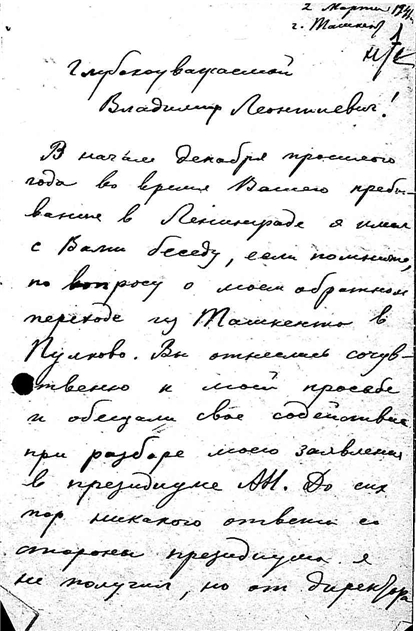 2 Марта 1941
г. Ташкент
Глубокоуважаемый
Владимир Леонтиевич!
В начале декабря прошлого
года во время Вашего пребы-
вания в Ленинграде я имел
с Вами беседу, если помните,
по вопросу о моем обратном
переходе из Ташкента в
Пулково. Вы отнеслись сочув-
ственно к моей просьбе
и обещали свое содействие
при разборе моего заявления
в президиуме АН. До сих
пор никакого ответа со
стороны президиума я
не получил, но от директора